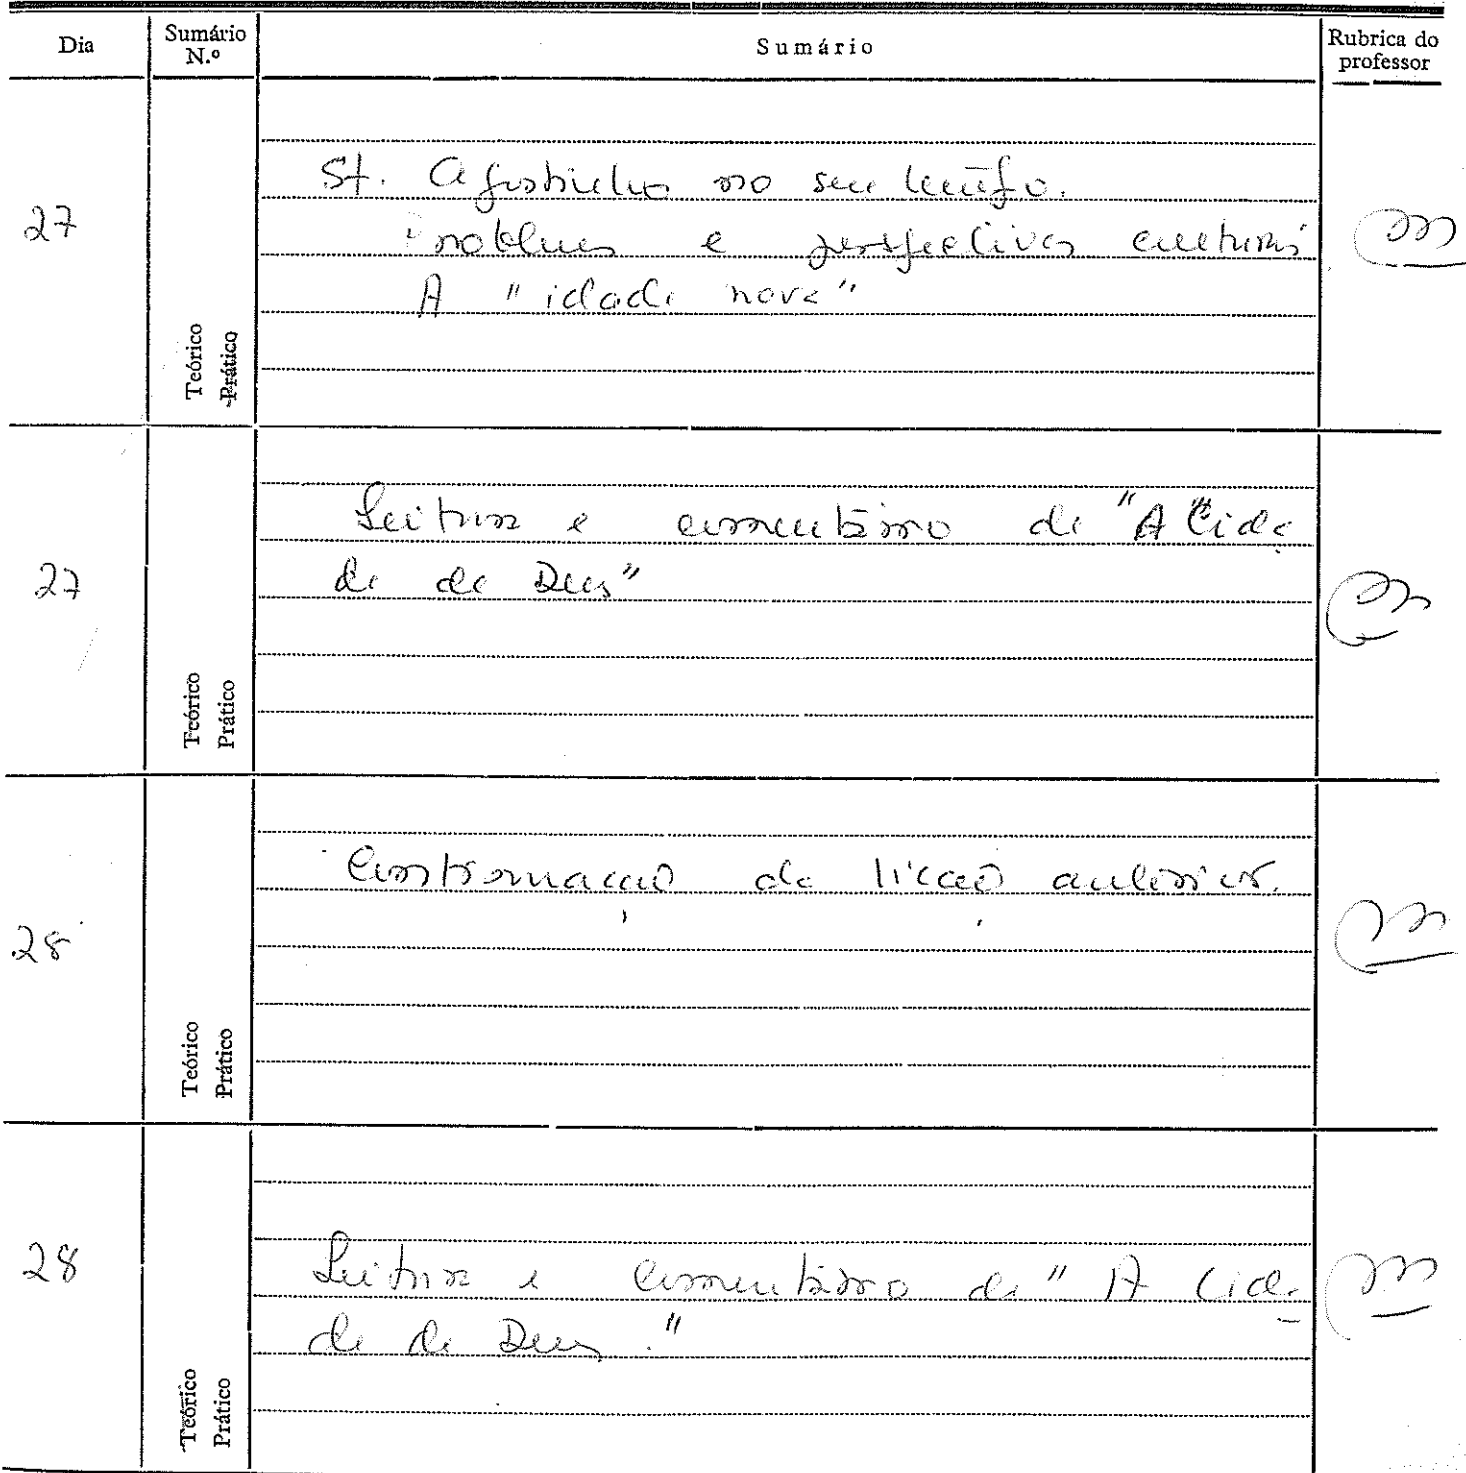 Dia
Sumário
N.º
Sumário
Rubrica do
professor
27
St. Agostinho no seu tempo.
Problemas e perspectivas culturais
A "idade nova"
Teórico
Prático
27
Leitura e comentário de "A Cida
de de Deus"
Teórico
Prático
28
Continuação da lição anterior.
Teórico
Prático
28
Leitura e comentário de "A Cida
de de Deus."
Teórico
Prático